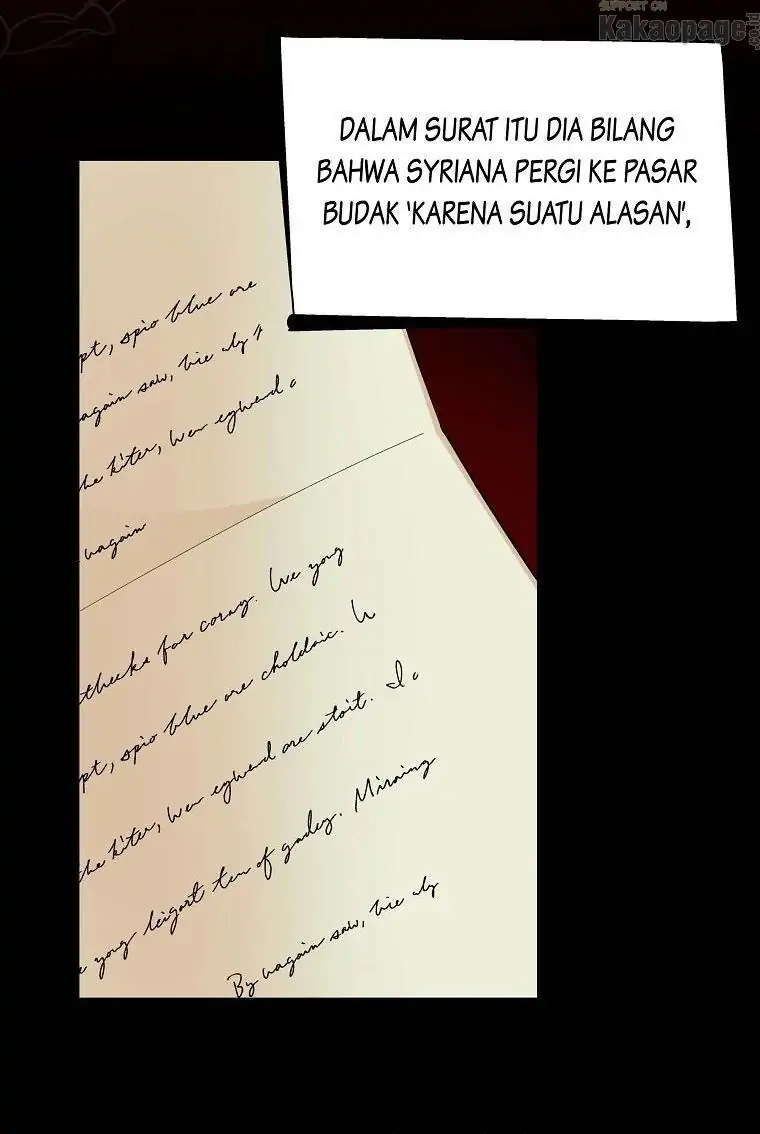 SUPPORT ON
Kakaopage
DALAM SURAT ITU DIA BILANG
BAHWA SYRIANA PERGI KE PASAR
BUDAK 'KARENA SUATU ALASAN',
pt, spio blue are
again saw,
the kiter, egwend
vagain
for coray. We yong
pt, spio blue are choldaic.
the kiter, egwend are stoit. I
yong leigart ten of gadey. Miraing
By vagain saw,